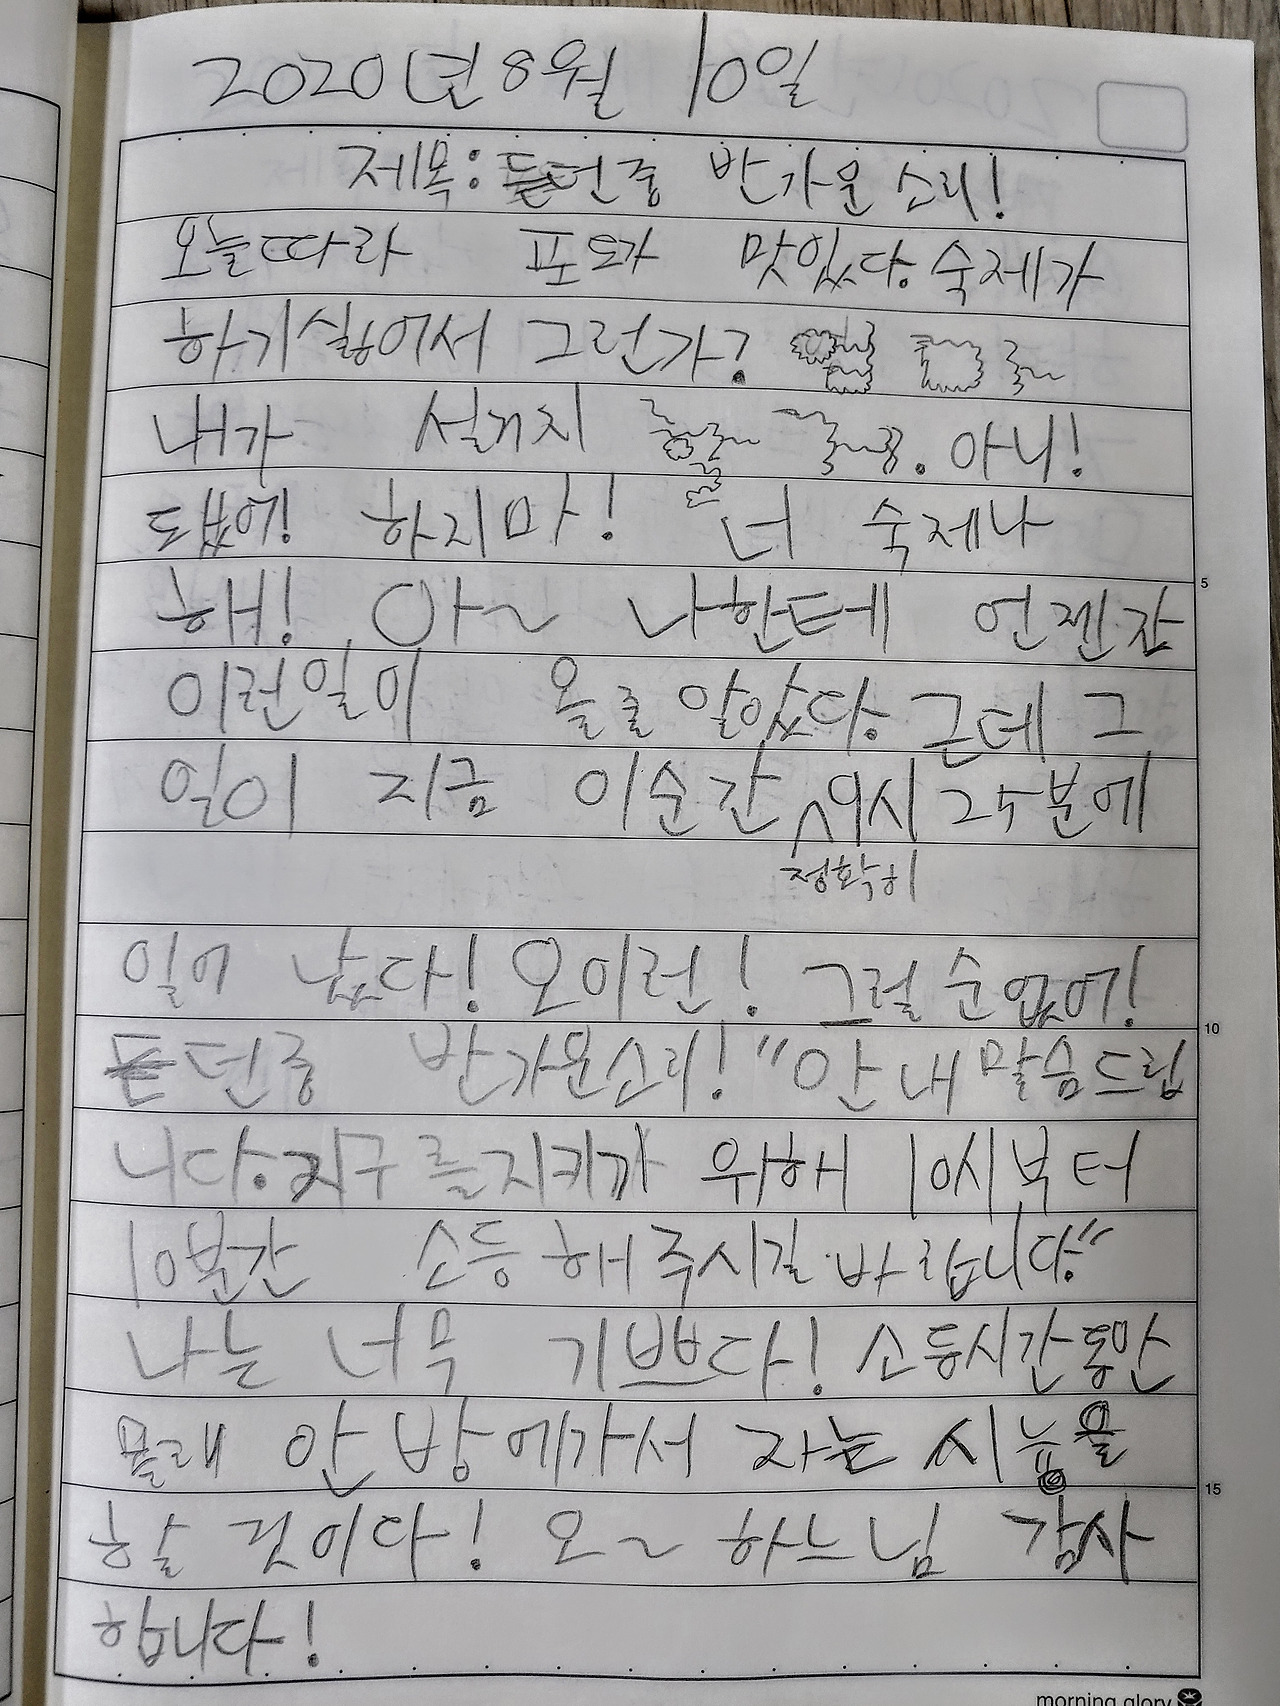 2020년 8월 10일
제목: 듣던중 반가운 소리!
오늘따라 포도가 맛있다. 숙제가
하기 싫어서 그런가?
내가 설거지 . 아니!
됐어! 하지마! 너 숙제나
해! 아~ 나한테 언젠간
이런일이 올줄 알았다. 근데 그
일이 지금 이순간 정확히 9시 25분에
일어 났다! 오이런! 그럴 순 없어!
듣던중 반가운소리! "안내 말씀드립
니다. 지구를지키기 위해 10시부터
10분간 소등해주시길 바랍니다."
나는 너무 기쁘다! 소등시간동안
몰래 안방에가서 자는 시늉을
할 것이다! 오~ 하느님 감사
합니다!
morning glory
5
10
15